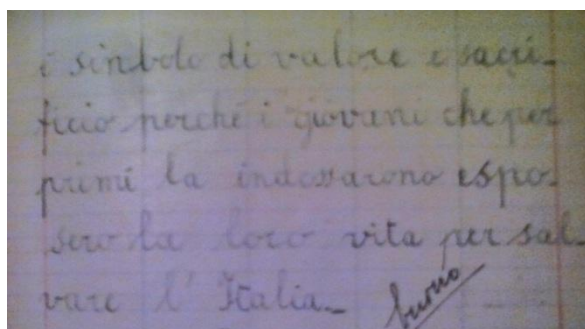 è sinbolo di valore e sacri-
ficio perché i giovani che per
primi la indossarono espo-
sero la loro vita per sal-
vare l' Italia.
buono